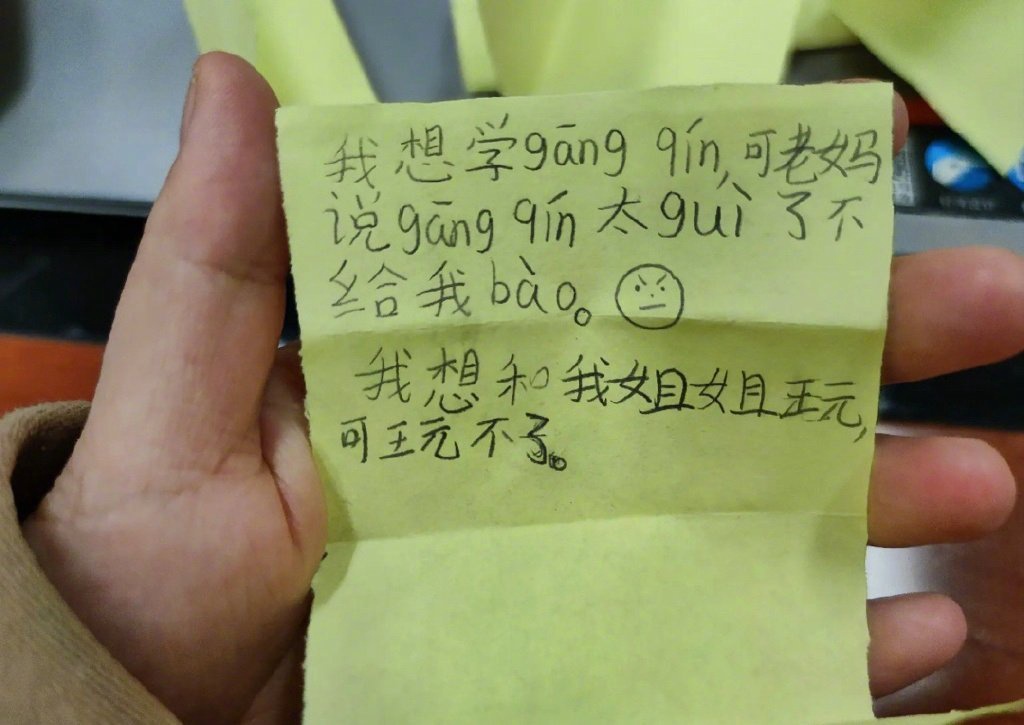 我想学gāng qín,可老妈
说gāng qín 太guì了不
给我bào。
我想和我姐姐王元,
可王元不了。